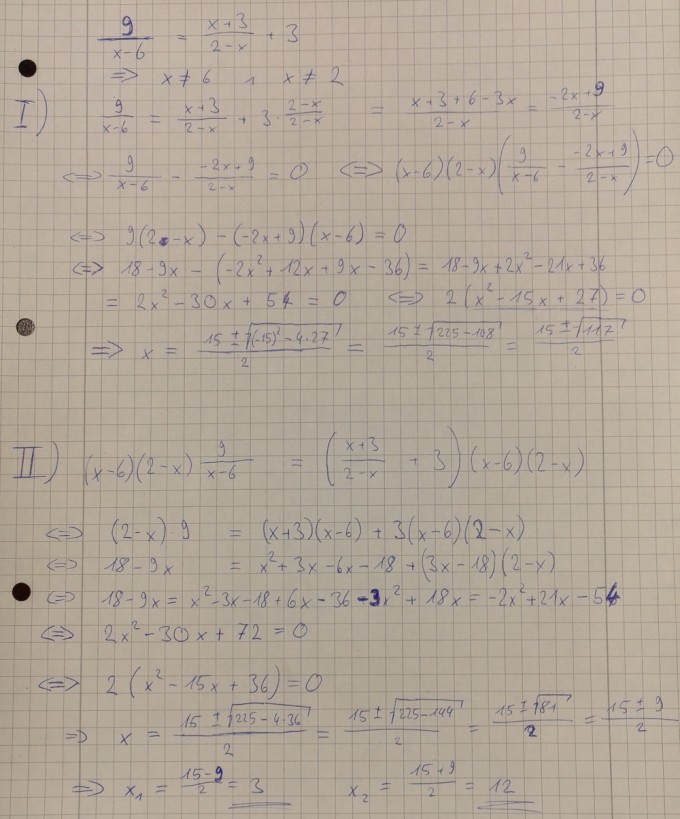 9/(x-6) = (x+3)/(2-x) + 3
=> x ≠ 6 ∧ x ≠ 2
I) 9/(x-6) = (x+3)/(2-x) + 3 · (2-x)/(2-x) = (x+3+6-3x)/(2-x) = (-2x+9)/(2-x)
<=> 9/(x-6) - (-2x+9)/(2-x) = 0 <=> (x-6)(2-x)(9/(x-6) - (-2x+9)/(2-x)) = 0
<=> 9(2-x) - (-2x+9)(x-6) = 0
<=> 18-9x - (-2x²+12x+9x-36) = 18-9x+2x²-21x+36
= 2x²-30x+54 = 0 <=> 2(x²-15x+27) = 0
=> x = (15 ± √((-15)²-4·27))/2 = (15 ± √(225-108))/2 = (15 ± √117)/2
II) (x-6)(2-x) 9/(x-6) = ((x+3)/(2-x) + 3)(x-6)(2-x)
<=> (2-x)·9 = (x+3)(x-6) + 3(x-6)(2-x)
<=> 18-9x = x²+3x-6x-18+(3x-18)(2-x)
<=> 18-9x = x²-3x-18+6x-36-3x²+18x = -2x²+21x-54
<=> 2x²-30x+72 = 0
<=> 2(x²-15x+36) = 0
=> x = (15 ± √(225-4·36))/2 = (15 ± √(225-144))/2 = (15 ± √81)/2 = (15 ± 9)/2
=> x₁ = (15-9)/2 = 3 x₂ = (15+9)/2 = 12